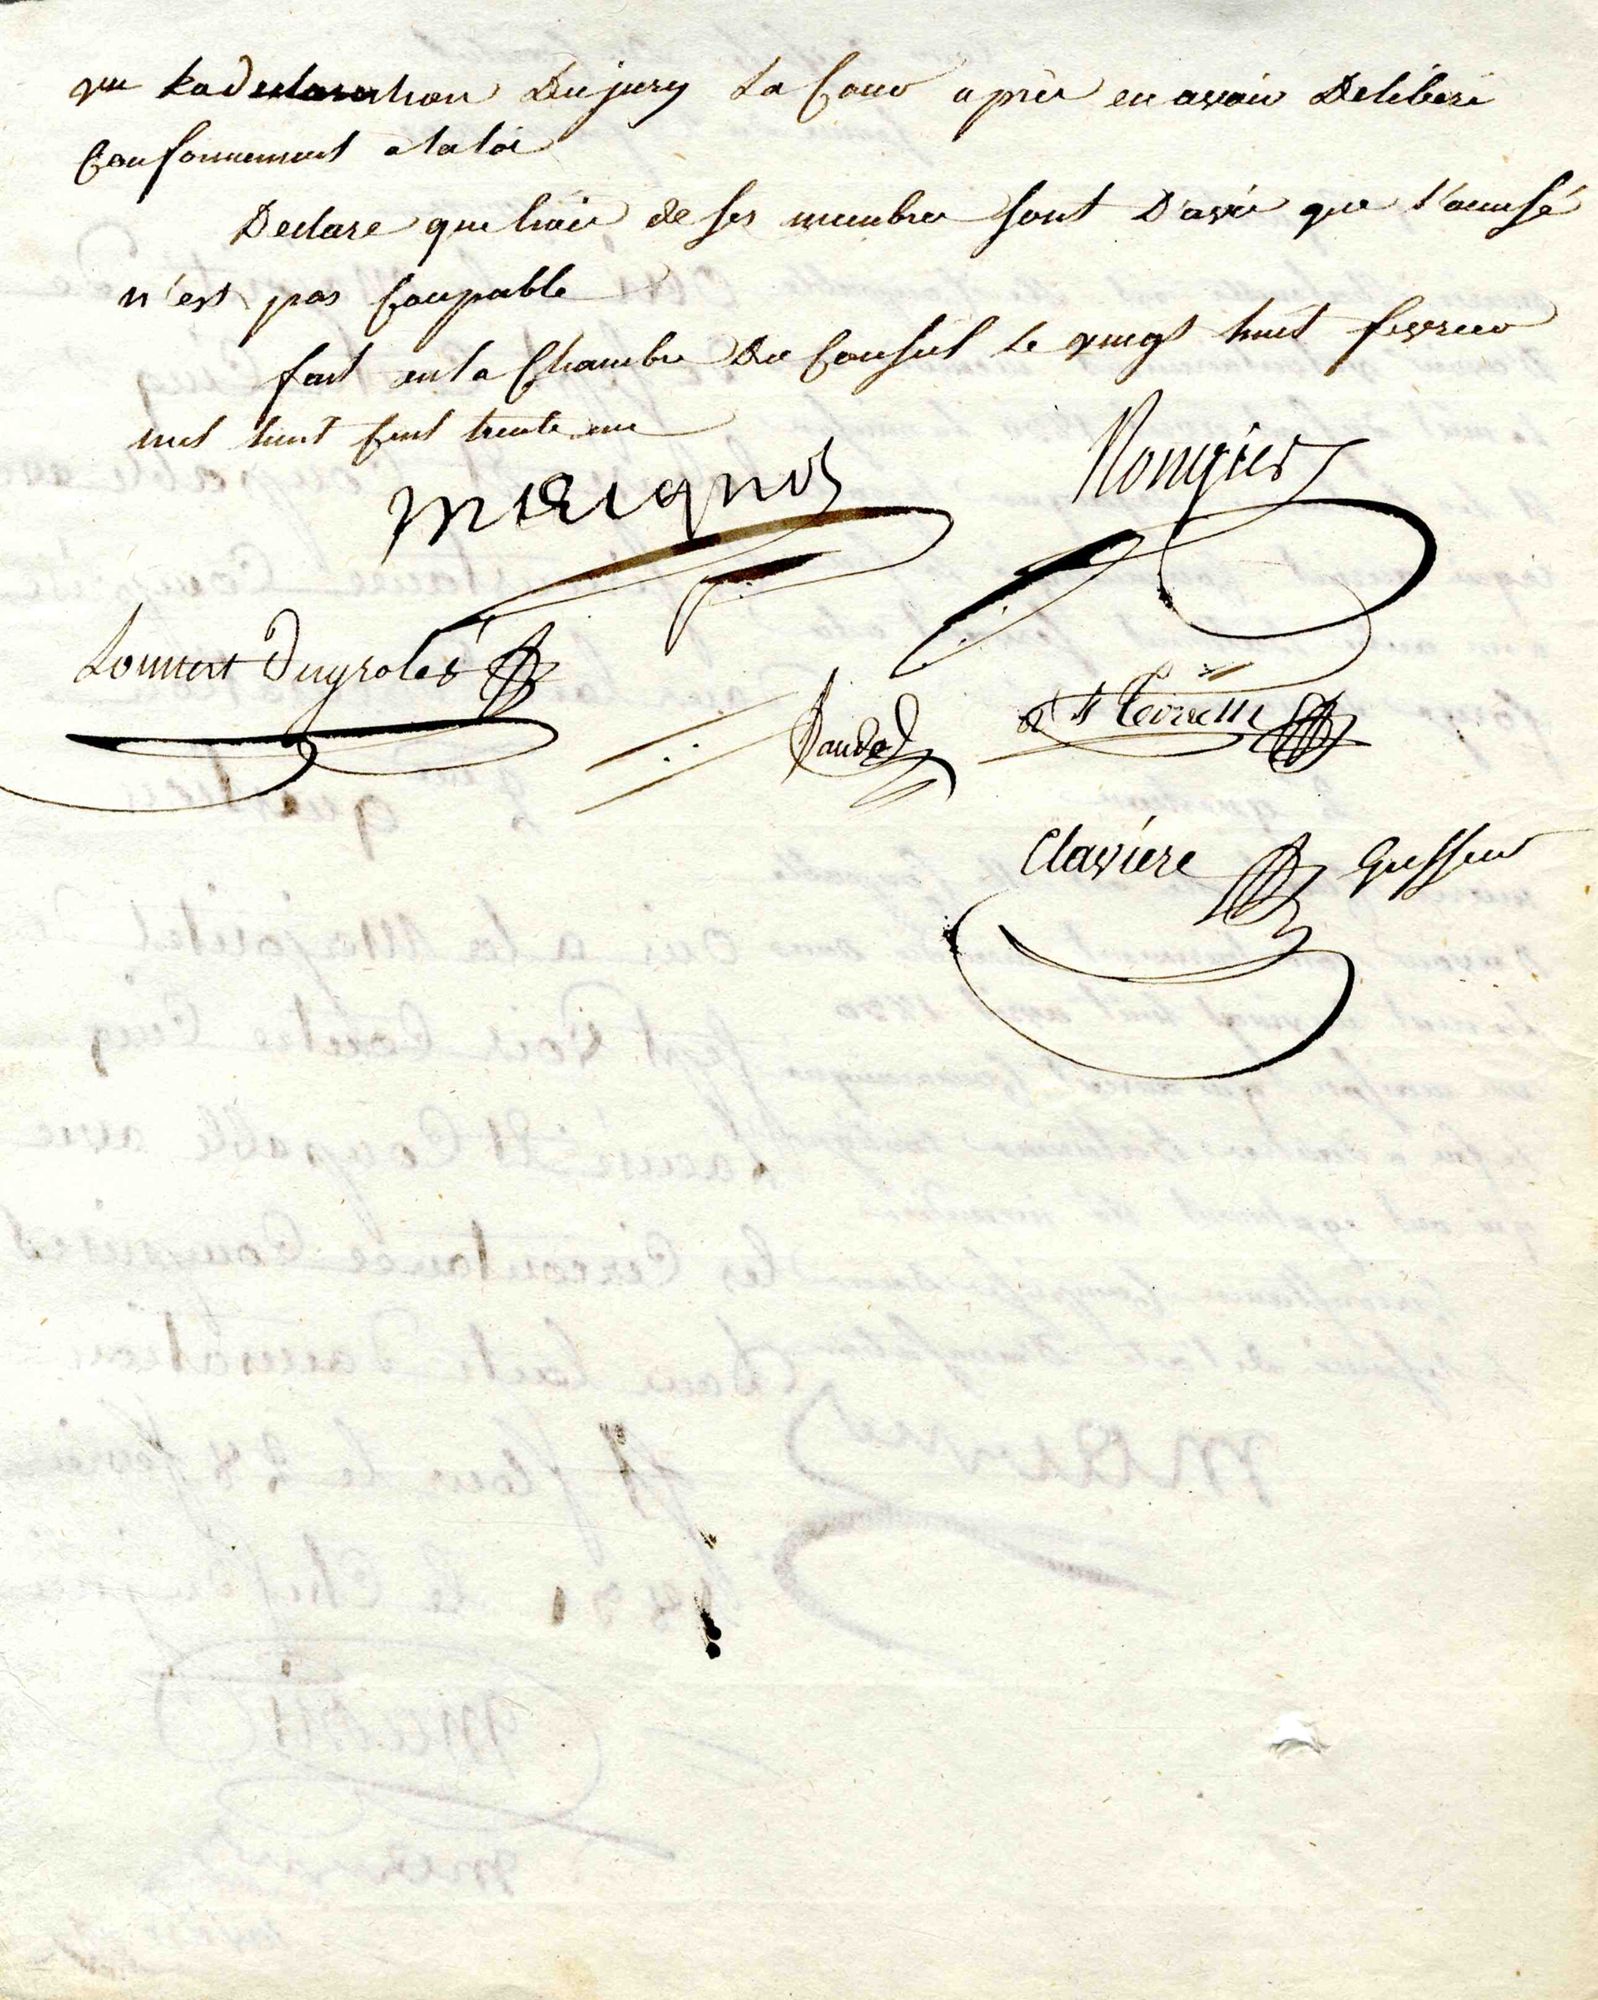 vu la declaration Du jury La Cour après en avoir Deliberé
Conformement a la loi
Declare que trois de ses membres sont D'avis que l'accusé
n'est pas Coupable
fait en la Chambre Du Conseil le vingt huit fevrier
mil huit Cent trente un
Rongier
Daude
Clavière Greffier